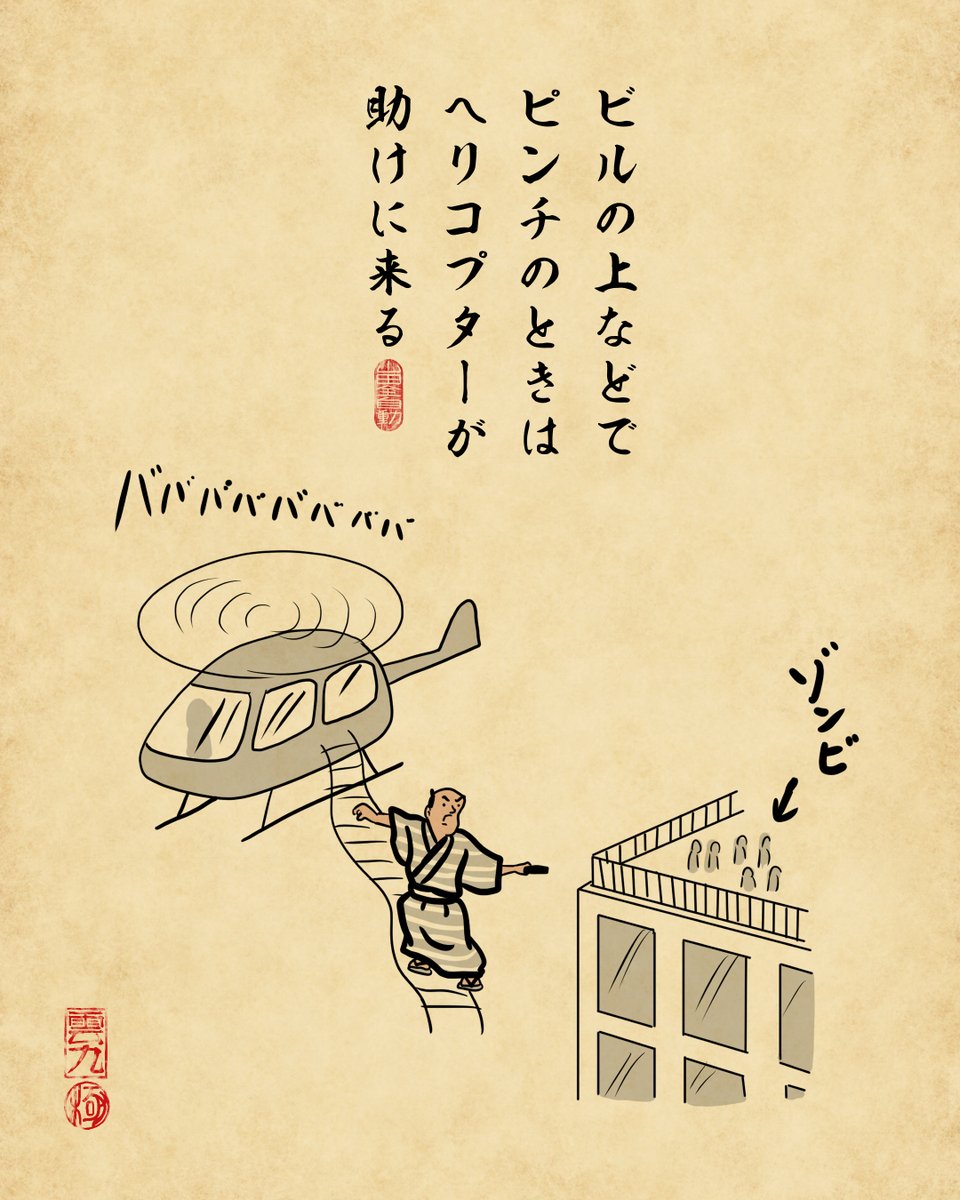 ビルの上などで
ピンチのときは
ヘリコプターが
助けに来る
ババババババババ
ゾンビ
雲九
極